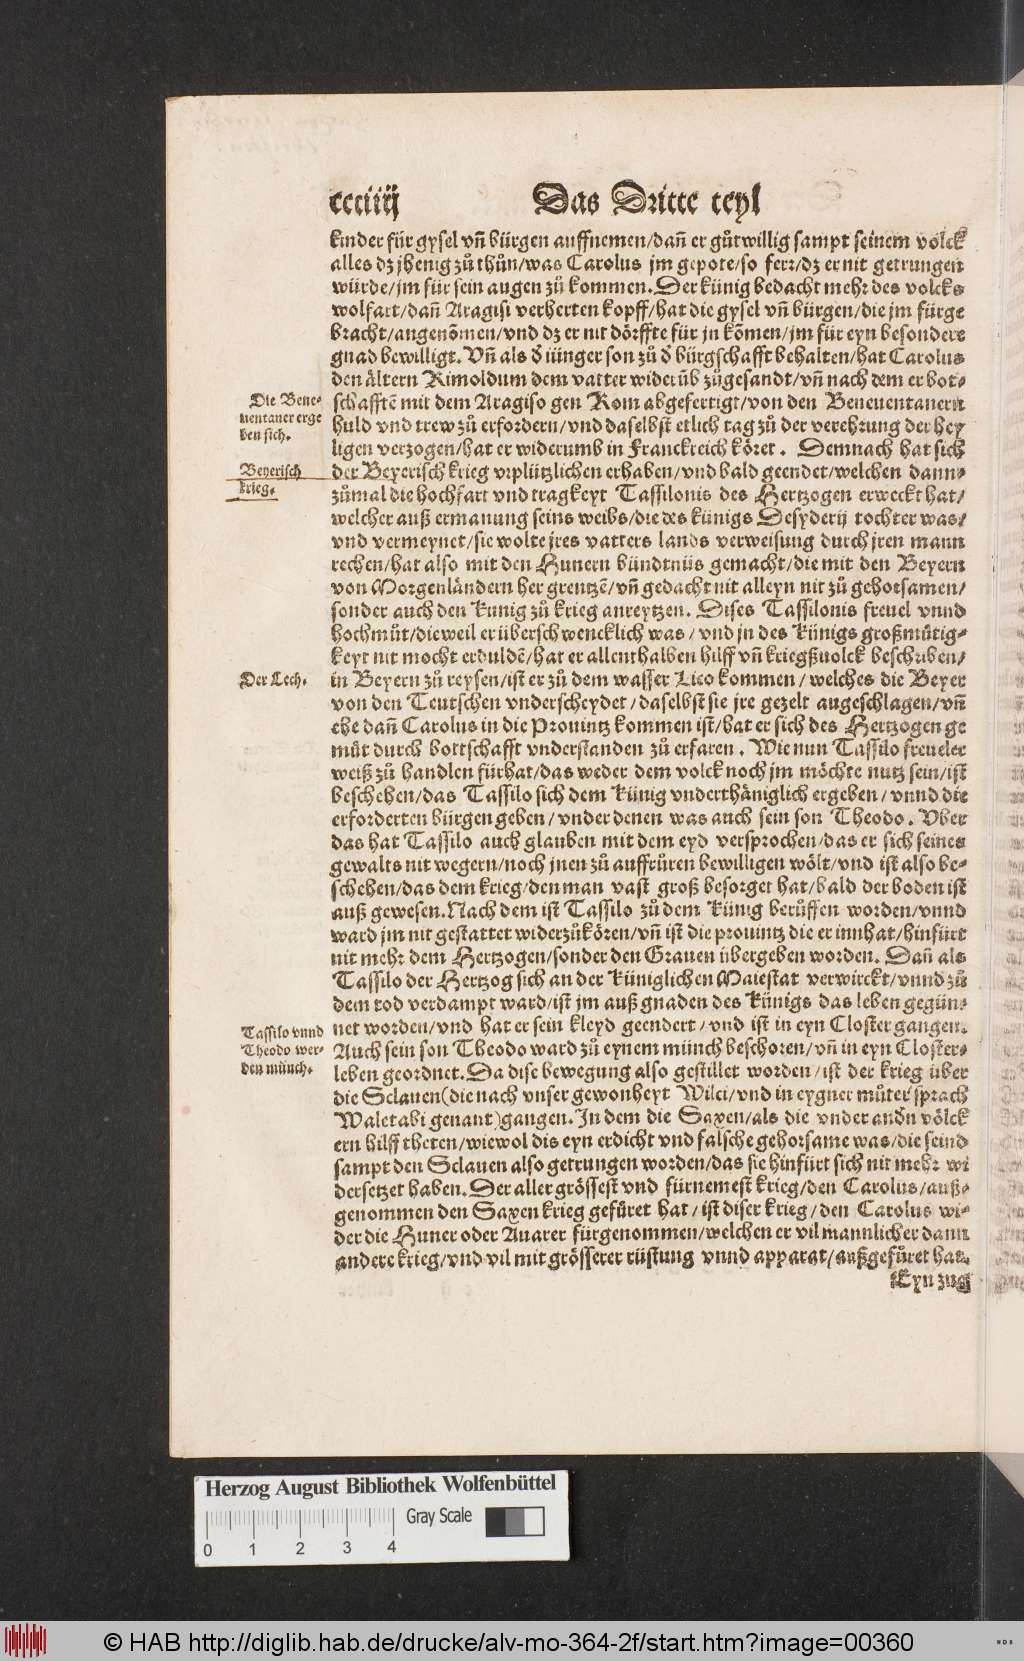 ccciiij Das Dritte teyl
kinder für gysel vñ bürgen auffnemen/dañ er gůtwillig sampt seinem volck
alles dz jhenig zů thůn/was Carolus jm gepote/so ferr/dz er nit getrungen
würde/jm für sein augen zů kommen. Der künig bedacht mehr des volcks
wolfart/dañ Aragisi verherten kopff/hat die gysel vñ bürgen/die jm fürge
bracht/angenõmen/vnd dz er nit dörffte für jn kõmen/jm für eyn besondere
gnad bewilligt. Vñ als ď jünger son zů ď bürgschafft behalten/hat Carolus
den ältern Rimoldum dem vatter widerüb zůgesandt/vñ nach dem er bot-
schafftẽ mit dem Aragiso gen Rom abgefertigt/von den Beneuentanern
huld vnd trew zů erfordern/vnd daselbst etlich tag zů der verehrung der hey
ligen verzogen/hat er widerumb in Franckreich köret. Demnach hat sich
der Beyerisch krieg vrplützlichen erhaben/vnd bald geendet/welchen dann-
zůmal die hochfart vnd tragkeyt Tassilonis des Hertzogen erweckt hat/
welcher auß ermanung seins weibs/die des künigs Desyderij tochter was/
vnd vermeynet/sie wolte jres vatters lands verweisung durch jren mann
rechen/hat also mit den Hunern bündtnüs gemacht/die mit den Beyern
von Morgenländern her grentzẽ/vñ gedacht nit alleyn nit zů gehorsamen/
sonder auch den Kunig zů krieg anreytzen. Dises Tassilonis freuel vnnd
hochmůt/dieweil er überschwencklich was/vnd jn des Künigs großmůtig-
keyt nit mocht erduldẽ/hat er allenthalben hilff vñ kriegßuolck beschriben/
in Beyern zů reysen/ist er zů dem wasser Lico kommen/welches die Beyer
von den Teutschen vnderscheydet/daselbst sie jre gezelt augeschlagen/vñ
ehe dañ Carolus in die Prouintz kommen ist/hat er sich des Hertzogen ge
müt durch bottschafft vnderstanden zů erfaren. Wie nun Tassilo freueler
weiß zů handlen fürhat/das weder dem volck noch jm möchte nutz sein/ist
beschehen/das Tassilo sich dem Künig vnderthäniglich ergeben/vnnd die
erforderten bürgen geben/vnder denen was auch sein son Theodo. Vber
das hat Tassilo auch glauben mit dem eyd versprochen/das er sich seines
gewalts nit wegern/noch jnen zů auffrůren bewilligen wölt/vnd ist also be-
schehen/das dem krieg/den man vast groß besorget hat/bald der boden ist
auß gewesen. Nach dem ist Tassilo zů dem Künig berůffen worden/vnnd
ward jm nit gestattet widerzůkören/vñ ist die prouintz die er innhat/hinfürt
nit mehr dem Hertzogen/sonder den Grauen übergeben worden. Dañ als
Tassilo der Hertzog sich an der Küniglichen Maiestat verwirckt/vnnd zů
dem tod verdampt ward/ist jm auß gnaden des Künigs das leben gegün-
net worden/vnd hat er sein kleyd geendert/vnd ist in eyn Closter gangen.
Auch sein son Theodo ward zů eynem münch beschoren/vñ in eyn Closter-
leben geordnet. Da dise bewegung also gestillet worden/ist der krieg über
die Sclauen (die nach vnser gewonheyt Wilci/vnd in eygner můter sprach
Waletabi genant) gangen. In dem die Saxen/als die vnder anďn völck
ern hilff theten/wiewol dis eyn erdicht vnd falsche gehorsame was/die seind
sampt den Sclauen also getrungen worden/das sie hinfürt sich nit mehr wi
dersetzet haben. Der aller grössest vnd fürnemest krieg/den Carolus/auß-
genommen den Saxen krieg gefüret hat/ist diser krieg/den Carolus wi-
der die Huner oder Auarer fürgenommen/welchen er vil mannlicher dann
andere krieg/vnd vil mit grösserer rüstung vnnd apparat/außgefüret hat.
Eyn zug
Die Bene-
uentaner erge
ben sich.
Beyerisch
krieg.
Der Lech.
Tassilo vnnd
Theodo wer-
den münch.
Herzog August Bibliothek Wolfenbüttel
Gray Scale
0 1 2 3 4
© HAB http://diglib.hab.de/drucke/alv-mo-364-2f/start.htm?image=00360